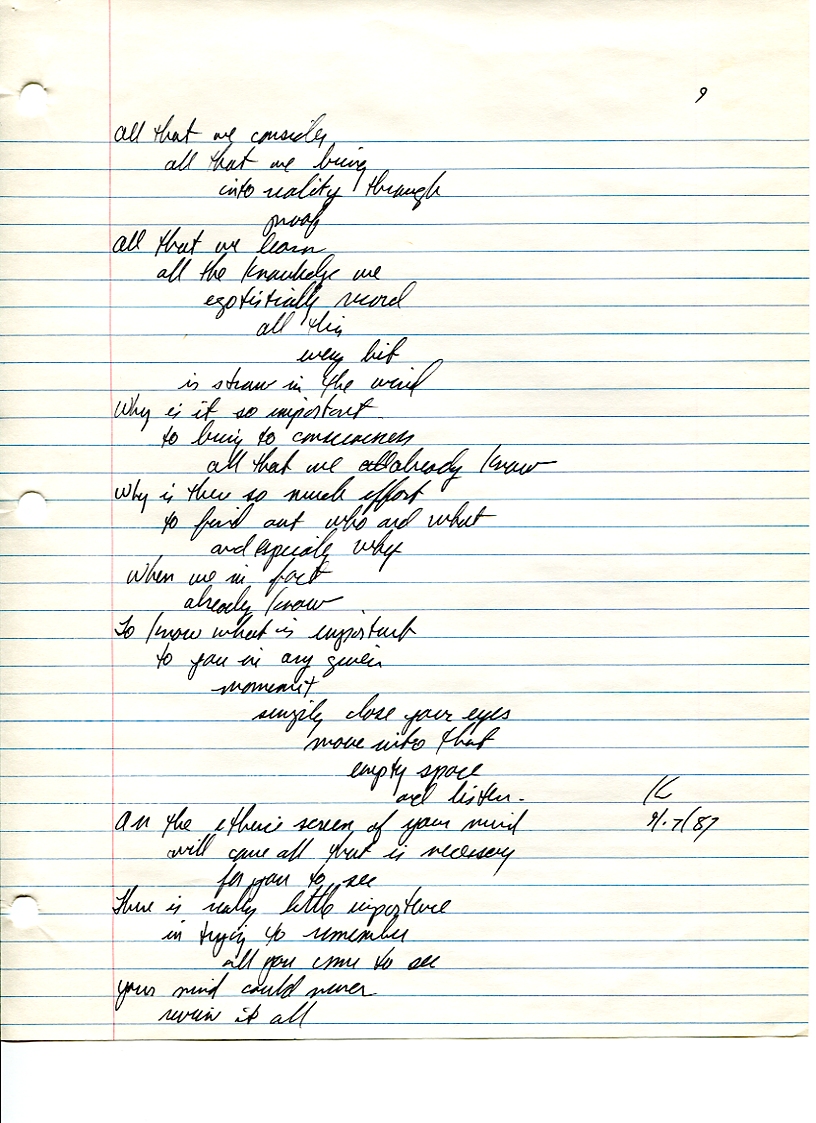 9
all that we consider
all that we bring
into reality through
proof
all that we learn
all the knowledge we
egotistically record
all this
every bit
is straw in the wind
Why is it so important
to bring to consciousness
all that we already know
Why is there so much effort
to find out who and what
and especially why
When we in fact
already know
To know what is important
to you in any given
moment
simply close your eyes
move into that
empty space
and listen.
K
9.7/87
On the etheric screen of your mind
will come all that is necessary
for you to see
There is really little importance
in trying to remember
all you come to see
your mind could never
it all